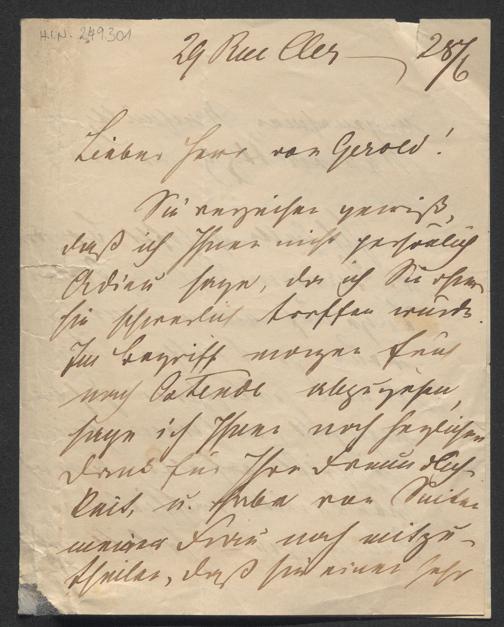 H.I.N. 249.301
29 Rue Cler 28/6
Lieber Herr von Gerold!
Sie verzeihen gewiß,
daß ich Ihnen nicht persönlich
Adieu sage, da ich Sie
hin schwerlich treffen würde.
Im Begriff morgen früh
nach Ostende abzugehen,
sage ich Ihnen noch herzlichen
Dank für Ihre Freundlich-
keit, u. habe von Seiten
meiner Frau noch mitzu-
theilen, daß sie einen sehr